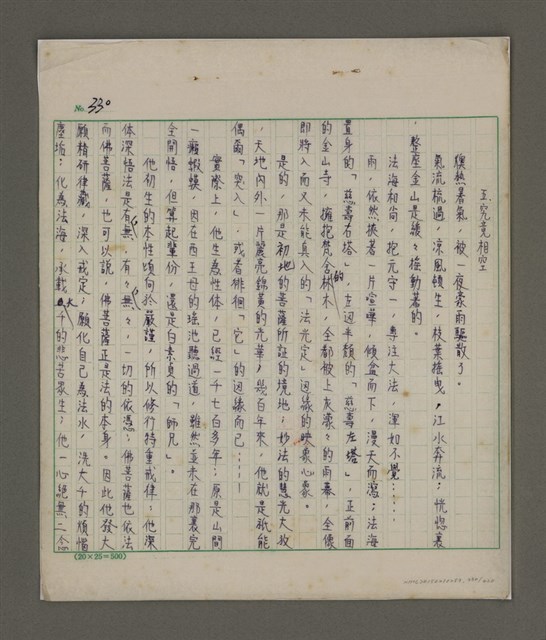 No. 330
五、究竟相空
懊熱暑氣，被一夜豪雨驅散了。
氣流梳過，涼風傾生，枝葉搖曳，江水奔流；恍惚裏
，整座金山是緩々搖動著的。
法海和尚，抱元守一，專注大法，渾如不覺……
雨，依然挾著一片喧嘩，傾盆而下，漫天而瀉；法海
置身的「慈壽右塔」，左迎半頹的「慈壽左塔」，正前面
的金山寺，擁抱梵舍的樹木，全都被上灰濛々的雨幕，全像
即將入而又未能真入的「法光定」迴緣的映象心象。
是的，那是初地的菩薩所証的境地；妙法的慧光大放
，天地內外一片麗亮錦簇的光華，幾百年來，他就是祇能
偶爾「突入」，或者徘徊「它」的迴緣而已……！
實際上，他生為性体，已經一千七百多年；原是山間
一癩蝦蟆，因在西王母的瑤池聽過道，雖然並未在那裏完
全開悟，但算起輩份，還是白素貞的「師兄」。
他初生的本性傾向於嚴謹，所以修行特重戒律；他深
体深悟法是有々無々，有々無々，一切的依憑；佛菩薩也依法
而佛菩薩，也可以說，佛菩薩正是法的本身。因此他發大
願精研律藏，深入戒定，願化自己為法水，洗大千的煩惱
塵垢；化為法海，承載大千的悲苦眾生；他一心絕無二念
(20×25=500)